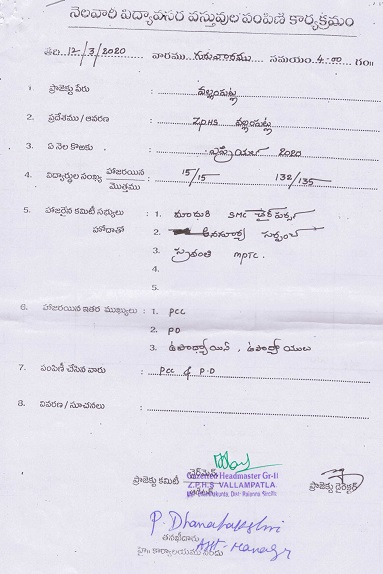 నెలవారి విద్యావసర వస్తువుల పంపిణి కార్యక్రమం
తేది 12/3/2020 వారము గురువారము సమయం 4:00 గం॥
1. ప్రాజెక్టు పేరు : వల్లంపట్ల
2. ప్రదేశము / ఆవరణ : ZPHS వల్లంపట్ల
3. ఏ నెల కొఱకు : ఏప్రియల్ 2020
4. విద్యార్థుల సంఖ్య హాజరయిన / మొత్తము 15/15 132/135
5. హాజరైన కమిటీ సభ్యులు హోదాతో : 1. మాధురి SMC చైర్ పర్సన్
2. సర్పంచ్
3. స్రవంతి MPTC.
4.
5.
6. హాజరయిన ఇతర ముఖ్యులు : 1. PCC
2. PD
3. ఉపాధ్యాయిని, ఉపాధ్యాయులు
7. పంపిణీ చేసిన వారు : PCC & P.D
8. వివరణ / సూచనలు :
ప్రాజెక్టు కమిటీ చైర్మెన్
Gazetted Headmaster Gr-II
Z.P.H.S VALLAMPATLA
ప్రాజెక్టు డైరెక్టర్
P. Dhanalakshmi
తనిఖీదారు
Asst-Manager
హై॥ కార్యాలయము నందు